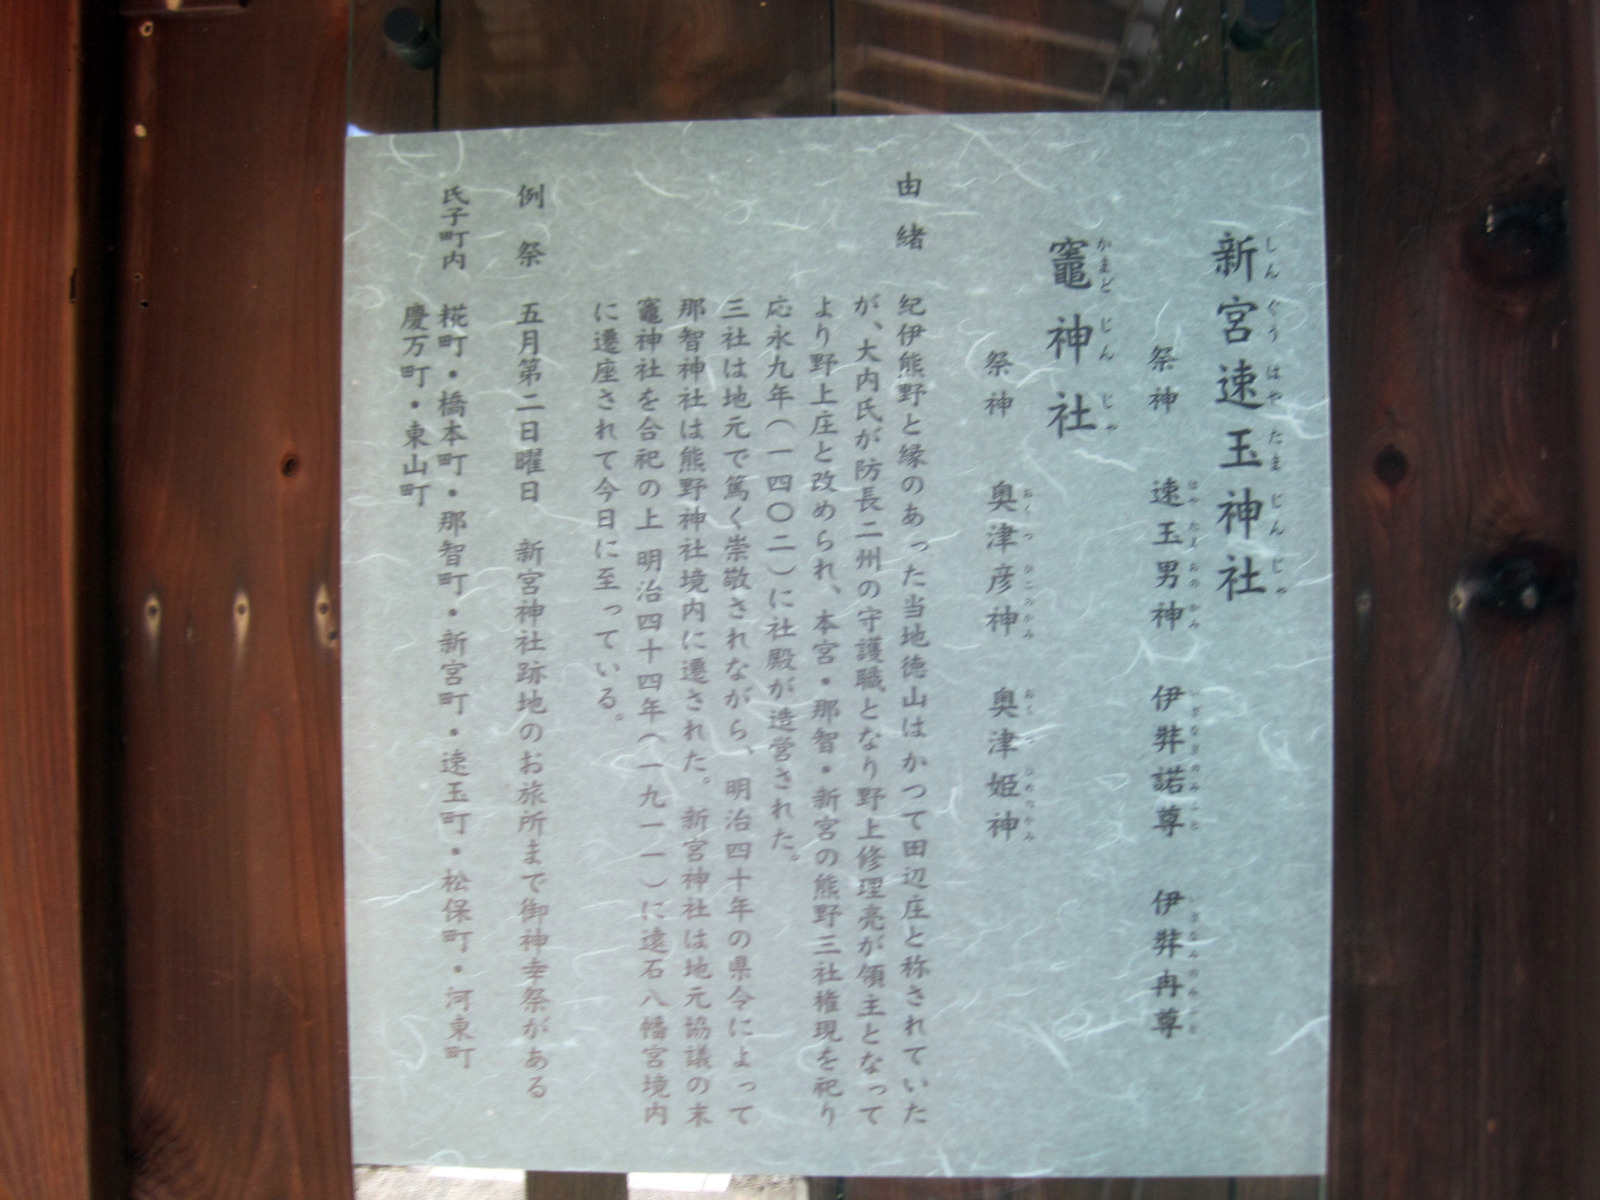 新宮速玉神社
しんぐうはやたまじんじゃ
祭神 速玉男神 伊弉諾尊 伊弉冉尊
はやたまおのかみ いざなぎのみこと いざなみのみこと
竈神社
かまどじんじゃ
祭神 奥津彦神 奥津姫神
おくつひこのかみ おくつひめのかみ
由緒 紀伊熊野と縁のあった当地徳山はかつて田辺庄と称されていた
が、大内氏が防長二州の守護職となり野上修理亮が領主となって
より野上庄と改められ、本宮・那智・新宮の熊野三社権現を祀り
応永九年(一四〇二)に社殿が造営された。
三社は地元で篤く崇敬されながら、明治四十年の県令によって
那智神社は熊野神社境内に遷された。新宮神社は地元協議の末
竈神社を合祀の上 明治四十四年(一九一一)に遠石八幡宮境内
に遷座されて今日に至っている。
例祭 五月第二日曜日 新宮神社跡地のお旅所まで御神幸祭がある
氏子町内 糀町・橋本町・那智町・新宮町・速玉町・松保町・河東町
慶万町・東山町